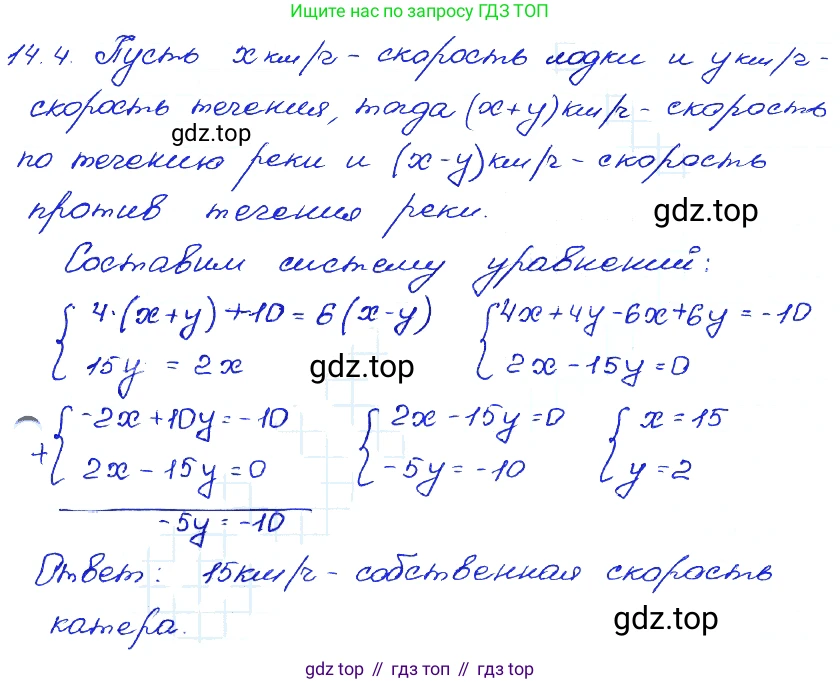 Ищите нас по запросу ГДЗ ТОП
14.4. Пусть x км/ч - скорость лодки и y км/ч -
скорость течения, тогда (x+y) км/ч - скорость
gdz.top
по течению реки и (x-y) км/ч - скорость
против течения реки.
gdz.top
Составим систему уравнений:
{ 4·(x+y)+10=6(x-y) { 4x+4y-6x+6y=-10
{ 15y = 2x { 2x-15y=0
gdz.top
+ { -2x+10y=-10 { 2x-15y=0 { x=15
{ 2x-15y=0 { -5y=-10 { y=2
-5y=-10
Ответ: 15км/ч - собственная скорость
катера.
gdz.top
gdz top // гдз топ // gdz.top